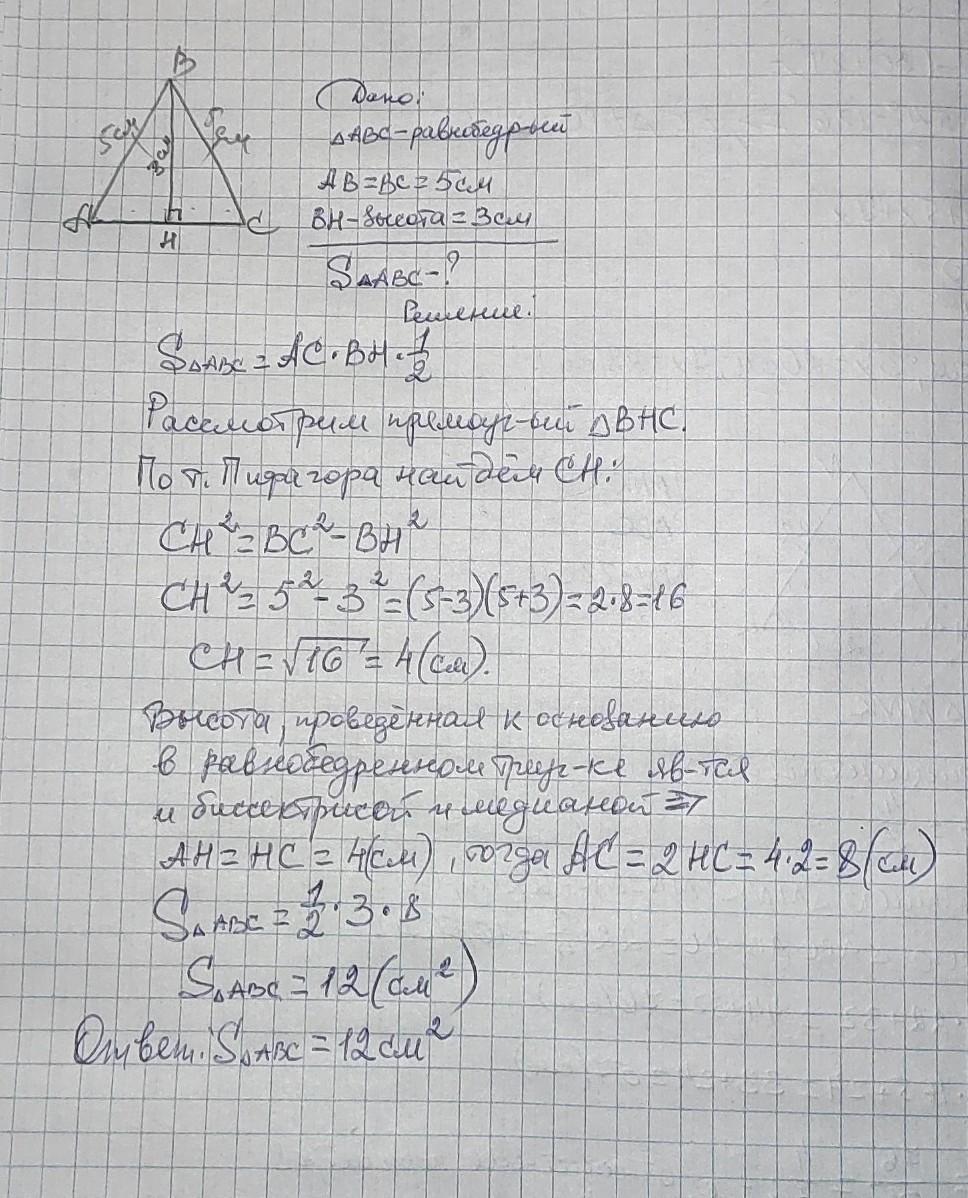 B
5см
3см
5см
A
H
C
Дано:
△ABC-равнобедр-ый
AB=BC=5см
BH-высота=3см
S△ABC-?
Решение:
S△ABC=AC·BH·1/2
Рассмотрим прямоуг-ый △BHC.
По т. Пифагора найдём CH:
CH²=BC²-BH²
CH²=5²-3²=(5-3)(5+3)=2·8=16
CH=√16=4(см).
Высота, проведённая к основанию
в равнобедренном треуг-ке яв-тся
и биссектрисой и медианой ⇒
AH=HC=4(см), тогда AC=2HC=4·2=8(см)
S△ABC=1/2·3·8
S△ABC=12(см²)
Ответ: S△ABC=12см²